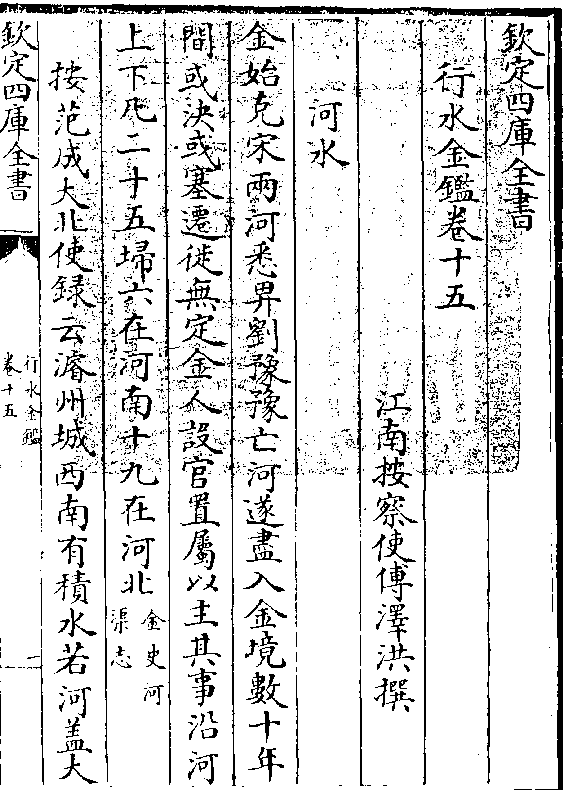 欽定四庫全書
行水金鑑卷十五
江南按察使傅澤洪撰
河水
金始克宋兩河悉畀劉豫豫亡河遂盡入金境數十年
間或決或塞遷徙無定金人設官置屬以主其事沿河
上下凡二十五埽六在河南十九在河北金史河
渠志
按范成大北使録云濬州城西南有積水若河蓋大
欽定四庫全書
行水金鑑
卷十五
一